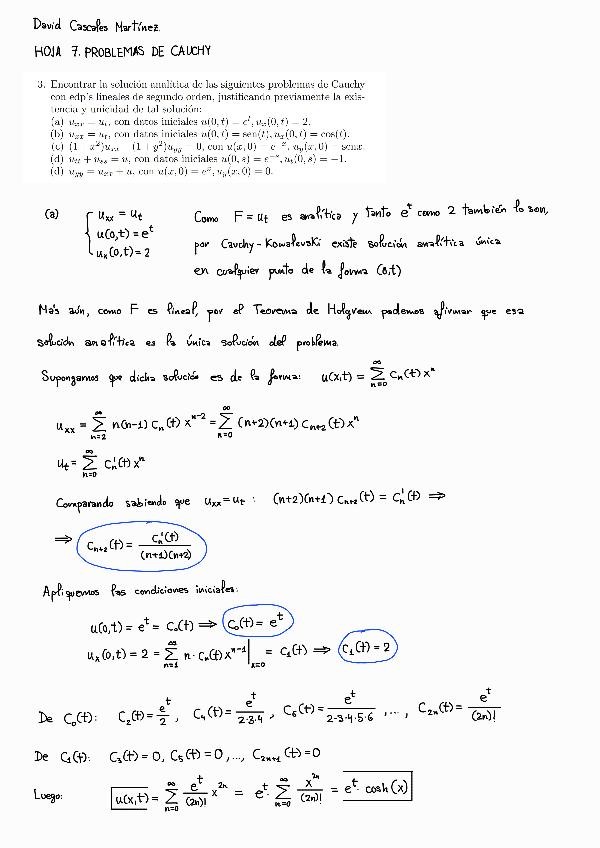 David Cascales Martínez.
HOJA 7. PROBLEMAS DE CAUCHY
3. Encontrar la solución analítica de las siguientes problemas de Cauchy
con edp's lineales de segundo orden, justificando previamente la exis-
tencia y unicidad de tal solución:
(a) u_xx = u_t, con datos iniciales u(0, t) = e^t, u_x(0, t) = 2.
(b) u_xx = u_t, con datos iniciales u(0, t) = sen(t), u_x(0, t) = cos(t).
(c) (1 − x²)u_xx − (1 + y²)u_yy = 0, con u(x, 0) = e^−x, u_y(x, 0) = senx.
(d) u_tt + u_ss = u, con datos iniciales u(0, s) = e^−s, u_t(0, s) = −1.
(d) u_yy = u_xx + u, con u(x, 0) = e^x, u_y(x, 0) = 0.
(a) { u_xx = u_t Como F = u_t es analítica y tanto e^t como 2 también lo son,
u(0,t) = e^t por Cauchy-Kowalevski existe solución analítica única
u_x(0,t) = 2 en cualquier punto de la forma (0,t)
Más aún, como F es lineal, por el Teorema de Holgrem podemos afirmar que esa
solución analítica es la única solución del problema.
Supongamos que dicha solución es de la forma: u(x,t) = ∑_{n=0}^∞ C_n(t) x^n
u_xx = ∑_{n=2}^∞ n(n-1) C_n(t) x^{n-2} = ∑_{n=0}^∞ (n+2)(n+1) C_{n+2}(t) x^n
u_t = ∑_{n=0}^∞ C_n'(t) x^n
Comparando sabiendo que u_xx = u_t : (n+2)(n+1) C_{n+2}(t) = C_n'(t) ⇒
⇒ C_{n+2}(t) = C_n'(t) / (n+1)(n+2)
Apliquemos las condiciones iniciales:
u(0,t) = e^t = C_0(t) ⇒ C_0(t) = e^t
u_x(0,t) = 2 = ∑_{n=1}^∞ n · C_n(t) x^{n-1} |_{x=0} = C_1(t) ⇒ C_1(t) = 2
De C_0(t): C_2(t) = e^t/2 , C_4(t) = e^t/2·3·4 , C_6(t) = e^t/2·3·4·5·6 , ... , C_{2n}(t) = e^t/(2n)!
De C_1(t): C_3(t) = 0, C_5(t) = 0, ..., C_{2n+1}(t) = 0
Luego: u(x,t) = ∑_{n=0}^∞ e^t/(2n)! x^{2n} = e^t · ∑_{n=0}^∞ x^{2n}/(2n)! = e^t · cosh(x)